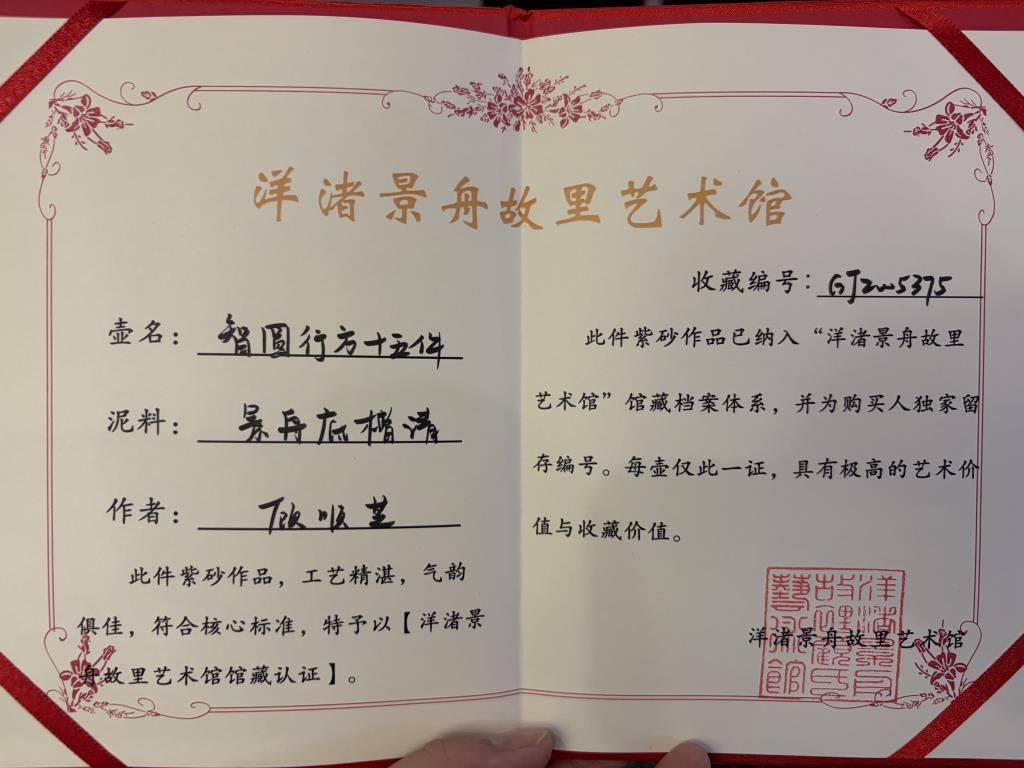 洋渚景舟故里艺术馆
壶名：智圆行方十五件
泥料：景舟底槽清
作者：顾顺芝
此件紫砂作品，工艺精湛，气韵
俱佳，符合核心标准，特予以【洋渚景
舟故里艺术馆馆藏认证】。
收藏编号：5375
此件紫砂作品已纳入“洋渚景舟故里
艺术馆”馆藏档案体系，并为购买人独家留
存编号。每壶仅此一证，具有极高的艺术价
值与收藏价值。
洋渚景舟故里艺术馆